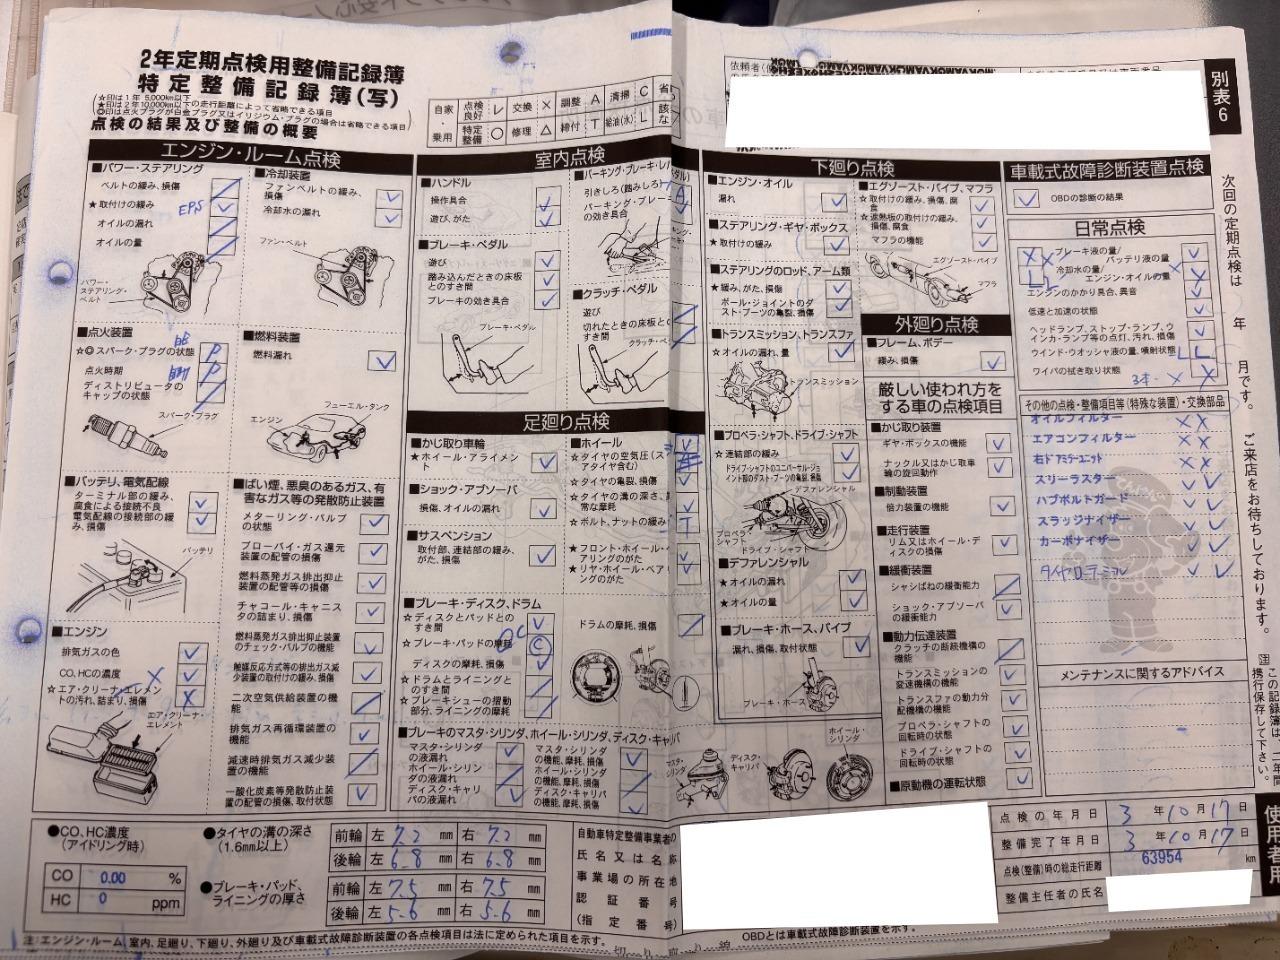 2年定期点検用整備記録簿
特定整備記録簿(写)
☆印は1年 5,000km以下
★印は2年10,000km以下の走行距離によって省略できる項目
◎印は点火プラグが白金プラグ又はイリジウム・プラグの場合は省略できる項目
点検の結果及び整備の概要
自家・乗用
点検良好 レ 交換 × 調整 A 清掃 C 省
特定整備 ○ 修理 △ 締付 T 給油(水) L 該な
依頼者
別表6
エンジン・ルーム点検
■パワー・ステアリング
ベルトの緩み、損傷
★取付けの緩み
EPS
オイルの漏れ
オイルの量
パワー・ステアリング・ベルト
■冷却装置
ファンベルトの緩み、損傷
冷却水の漏れ
ファン・ベルト
■点火装置
☆◎スパーク・プラグの状態 P
点火時期 P
ディストリビュータのキャップの状態
スパーク・プラグ
■燃料装置
燃料漏れ
フューエル・タンク
エンジン
■バッテリ、電気配線
ターミナル部の緩み、腐食による接続不良
電気配線の接続部の緩み、損傷
バッテリ
■エンジン
排気ガスの色
CO、HCの濃度
☆エア・クリーナ・エレメントの汚れ、詰まり、損傷
エア・クリーナ・エレメント
■ばい煙、悪臭のあるガス、有害なガス等の発散防止装置
メターリング・バルブの状態
ブローバイ・ガス還元装置の配管の損傷
燃料蒸発ガス排出抑止装置の配管等の損傷
チャコール・キャニスタの詰まり、損傷
燃料蒸発ガス排出抑止装置のチェック・バルブの機能
触媒反応方式等の排出ガス減少装置の取付けの緩み、損傷
二次空気供給装置の機能
排気ガス再循環装置の機能
減速時排気ガス減少装置の機能
一酸化炭素等発散防止装置の配管の損傷、取付状態
室内点検
■ハンドル
操作具合
遊び、がた
■ブレーキ・ペダル
遊び
踏み込んだときの床板とのすき間
ブレーキの効き具合
ブレーキ・ペダル
■パーキング・ブレーキ・レバ
引きしろ(踏みしろ) A
パーキング・ブレーキの効き具合
■クラッチ・ペダル
遊び
切れたときの床板とのすき間
足廻り点検
■かじ取り車輪
★ホイール・アライメント
■ショック・アブソーバ
損傷、オイルの漏れ
■サスペンション
取付部、連結部の緩み、がた、損傷
■ホイール
☆タイヤの空気圧(スペアタイヤ含む)
☆タイヤの亀裂、損傷
☆タイヤの溝の深さ、異常な摩耗
☆ボルト、ナットの緩み T
★フロント・ホイール・ベアリングのがた
★リヤ・ホイール・ベアリングのがた
■ブレーキ・ディスク、ドラム
☆ディスクとパッドとのすき間
☆ブレーキ・パッドの摩耗
ディスクの摩耗、損傷
☆ドラムとライニングとのすき間
☆ブレーキシューの摺動部分、ライニングの摩耗
ドラムの摩耗、損傷
■ブレーキのマスタ・シリンダ、ホイール・シリンダ、ディスク・キャリパ
マスタ・シリンダの液漏れ
ホイール・シリンダの液漏れ
ディスク・キャリパの液漏れ
マスタ・シリンダの機能、摩耗、損傷
ホイール・シリンダの機能、摩耗、損傷
ディスク・キャリパの機能、摩耗、損傷
マスタ・シリンダ
ディスク・キャリパ
ホイール・シリンダ
下廻り点検
■エンジン・オイル
漏れ
■ステアリング・ギヤ・ボックス
★取付けの緩み
■ステアリングのロッド、アーム類
★緩み、がた、損傷
ボール・ジョイントのダスト・ブーツの亀裂、損傷
■トランスミッション、トランスファ
☆オイルの漏れ、量
トランスミッション
■プロペラ・シャフト、ドライブ・シャフト
☆連結部の緩み
ドライブ・シャフトのユニバーサル・ジョイント部のダスト・ブーツの亀裂、損傷
デファレンシャル
プロペラ・シャフト
ドライブ・シャフト
■デファレンシャル
★オイルの漏れ
★オイルの量
■ブレーキ・ホース、パイプ
漏れ、損傷、取付状態
ブレーキ・ホース
■エグゾースト・パイプ、マフラ
☆取付けの緩み、損傷、腐食
☆遮熱板の取付けの緩み、損傷、腐食
マフラの機能
エグゾースト・パイプ
マフラ
外廻り点検
■フレーム、ボデー
緩み、損傷
厳しい使われ方をする車の点検項目
■かじ取り装置
ギヤ・ボックスの機能
ナックル又はかじ取車輪の旋回動作
■制動装置
倍力装置の機能
■走行装置
リム又はホイール・ディスクの損傷
■緩衝装置
シャシばねの緩衝能力
ショック・アブソーバの緩衝能力
■動力伝達装置
クラッチの断続機構の機能
トランスミッションの変速機構の機能
トランスファの動力分配機構の機能
プロペラ・シャフトの回転時の状態
ドライブ・シャフトの回転時の状態
■原動機の運転状態
車載式故障診断装置点検
OBDの診断の結果
日常点検
ブレーキ液の量/バッテリ液の量
冷却水の量/エンジン・オイルの量
エンジンのかかり具合、異音
低速と加速の状態
ヘッドランプ、ストップ・ランプ、ウインカ・ランプ等の点灯、汚れ、損傷
ウインド・ウオッシャ液の量、噴射状態 L L
ワイパの拭き取り状態
3本- × ×
その他の点検・整備項目等(特殊な装置)・交換部品
オイルフィルター × ×
エアコンフィルター × ×
右ドアミラーユニット × ×
スリーラスター
ハブボルトガード
スラッジナイザー
カーボナイザー
タイヤローテーション
メンテナンスに関するアドバイス
次回の定期点検は 年 月です。ご来店をお待ちしております。
注 この記録簿は、 年間携行保存して下さい。
使用者用
●CO、HC濃度(アイドリング時)
CO 0.00 %
HC 0 ppm
●タイヤの溝の深さ(1.6mm以上)
前輪 左 7.2 mm 右 7.2 mm
後輪 左 6.8 mm 右 6.8 mm
●ブレーキ・パッド、ライニングの厚さ
前輪 左 7.5 mm 右 7.5 mm
後輪 左 5.6 mm 右 5.6 mm
自動車特定整備事業者の
氏名又は名称
事業場の所在地
認証番号
(指定番号)
点検の年月日 3 年 10 月 17 日
整備完了年月日 3 年 10 月 17 日
点検(整備)時の総走行距離 63954 km
整備主任者の氏名
注:エンジン・ルーム、室内、足廻り、下廻り、外廻り及び車載式故障診断装置の各点検項目は法に定められた項目を示す。
OBDとは車載式故障診断装置を示す。
切り取り線